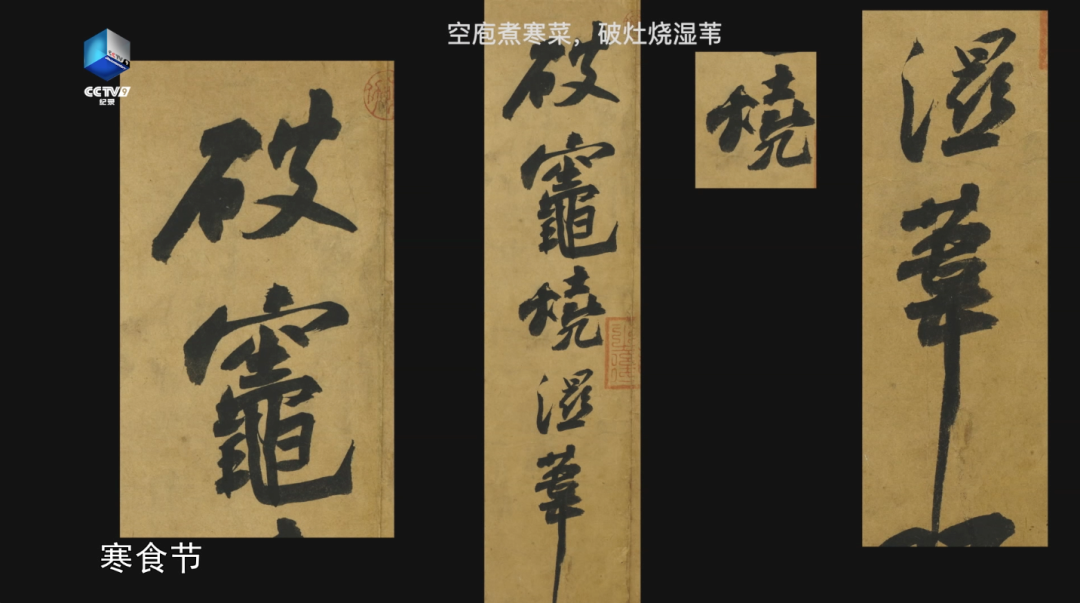 空庖煮寒菜，破灶烧湿苇
CCTV9
纪录
破
竈
破
竈
燒
溼
葦
燒
溼
葦
寒食节